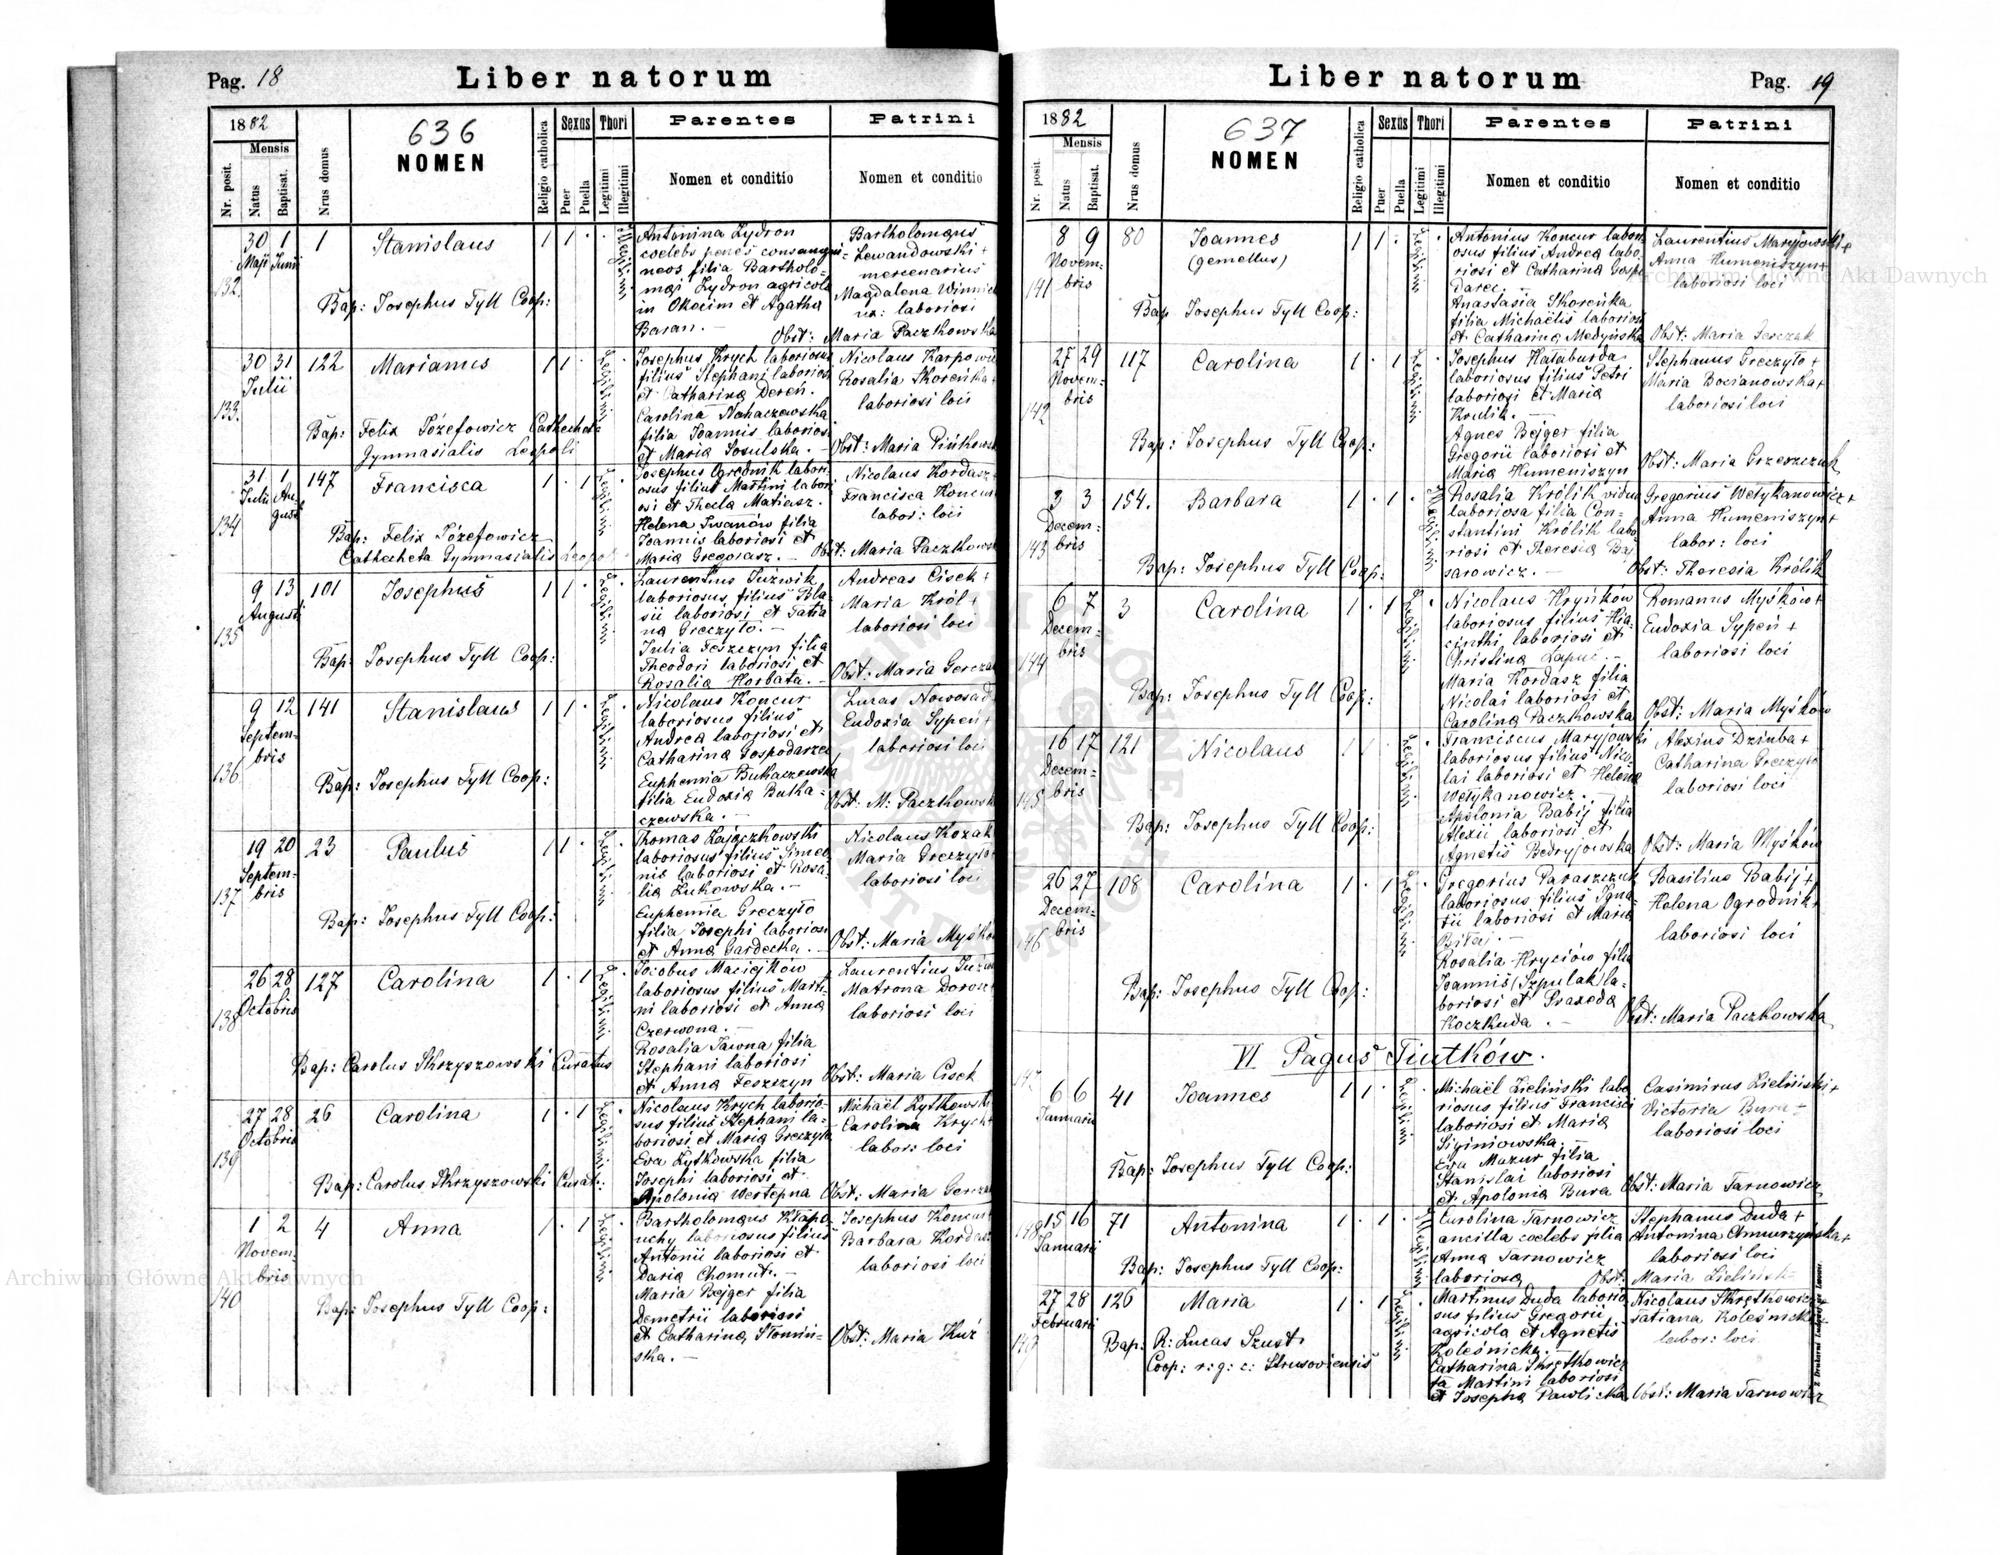 Pag. 18
Liber natorum
1882
636
NOMEN
Mensis
Nr. posit.
Natus
Baptisat.
Nrus domus
Religio catholica
Sexus
Puer
Puella
Thori
Legitimi
Illegitimi
Parentes
Nomen et conditio
Patrini
Nomen et conditio
132.
30 1
Maji Junii
1
Stanislaus
1 1 .
Illegitimi
Bap: Josephus Tyll Coop:
Antonina Zydron
coelebs penes consangui-
neos filia Bartholo-
maei Zydron agricola
in Okocim et Agatha
Baran. —
Bartholomaeus
Lewandowski +
mercenarius
Magdalena Winnic
ux: laboriosi
Obst: Maria Paczkowska
133.
30 31
Julii
122
Marianus
1 1 .
Legitimi
Bap: Felix Józefowicz Catecheta
Gymnasialis Leopoli
Josephus Krych laboriosus
filius Stephani laboriosi
et Catharina Dereń.
Carolina Nahaczewska
filia Joannis laboriosi
et Maria Sosulska. —
Nicolaus Karpowi
Rosalia Skoreńka +
laboriosi loci
Obst: Maria Pińkowsk
134
31 1
Julii Au-
gusti
147
Francisca
1 . 1
Legitimi
Bap: Felix Józefowicz
Catecheta Gymnasialis Leopol
Josephus Ogrodnik labori-
osus filius Martini labori
osi et Thecla Matiasz.
Helena Iwanów filia
Joannis laboriosi et
Maria Gregorasz. —
Nicolaus Kordasz +
Francisca Koncur
labor: loci
Obst: Maria Paczkowsk
135
9 13
Augusti
101
Josephus
1 1 .
Legitimi
Bap: Josephus Tyll Coop:
Laurentius Juzwik
laboriosus filius Bla-
sii laboriosi et Tatia
na Greczyło. —
Julia Feszczyn filia
Theodori laboriosi et
Rosalia Horbata. —
Andreas Cisek +
Maria Król +
laboriosi loci
Obst: Maria Gerczak
136
9 12
Septem-
bris
141
Stanislaus
1 1 .
Legitimi
Bap: Josephus Tyll Coop:
Nicolaus Koncur
laboriosus filius
Andrea laboriosi et
Catharina Gospodarzec
Euphemia Bukaczewska
filia Eudoxia Buka-
czewska. —
Lucas Nowosad
Eudoxia Sypeń +
laboriosi loci
Obst: M: Paczkowsk
137
19 20
Septem-
bris
23
Paulus
1 1 .
Legitimi
Bap: Josephus Tyll Coop:
Thomas Zajączkowski
laboriosus filius Simeo-
nis laboriosi et Rosa-
lia Żukowska. —
Euphemia Greczyło
filia Josephi laboriosi
et Anna Gardecka. —
Nicolaus Kozak
Maria Greczyło
laboriosi loci
Obst: Maria Myśków
138
26 28
Octobris
127
Carolina
1 . 1
Legitimi
Bap: Carolus Skrzyszowski Curatus
Jacobus Maciejków
laboriosus filius Marti-
ni laboriosi et Anna
Czerwona. —
Rosalia Jawna filia
Stephani laboriosi
et Anna Feszczyn
Laurentius Juzw
Matrona Dorosz
laboriosi loci
Obst: Maria Cisek
139
27 28
Octobris
26
Carolina
1 . 1
Legitimi
Bap: Carolus Skrzyszowski Curat:
Nicolaus Krych laborio-
sus filius Stephani la-
boriosi et Maria Greczyło
Eva Zytkowska filia
Josephi laboriosi et
Apolonia Wertepna
Michaël Zytkowski
Carolina Krych +
labor: loci
Obst: Maria Gerczak
140
1 2
Novem-
bris
4
Anna
1 . 1
Legitimi
Bap: Josephus Tyll Coop:
Bartholomaeus Kłapo-
uchy laboriosus filius
Antonii laboriosi et
Daria Chomut. —
Maria Bejger filia
Demetrii laboriosi
et Catharina Słomin-
ska. —
Josephus Koncur +
Barbara Kordasz
laboriosi loci
Obst: Maria Kuź
Liber natorum
Pag. 19
1882
637
NOMEN
Mensis
Nr. posit.
Natus
Baptisat.
Nrus domus
Religio catholica
Sexus
Puer
Puella
Thori
Legitimi
Illegitimi
Parentes
Nomen et conditio
Patrini
Nomen et conditio
141
8 9
Novem-
bris
80
Joannes
(gemellus)
1 1 .
Legitimi
Bap Josephus Tyll Coop:
Antonius Koncur labori
osus filius Andrea labo-
riosi et Catharina Gospo
darec. —
Anastasia Skoreńka
filia Michaëlis laboriosi
et Catharina Medyńska
Laurentius Maryjowski +
Anna Humeniszyn +
laboriosi loci
Obst: Maria Gerczak
142
27 29
Novem-
bris
117
Carolina
1 . 1
Legitimi
Bap: Josephus Tyll Coop:
Josephus Hataburda
laboriosus filius Petri
laboriosi et Maria
Kulik. —
Agnes Bejger filia
Gregorii laboriosi et
Maria Humeniszyn
Stephanus Greczyło +
Maria Bocianowska +
laboriosi loci
Obst: Maria Grzeszczuk
143
3 3
Decem-
bris
154.
Barbara
1 . 1
Illegitimi
Bap: Josephus Tyll Coop:
Rosalia Królik vidua
laboriosa filia Con-
stantini Królik labo
riosi et Theresia Baj
sarowicz. —
Gregorius Wełykanowicz +
Anna Humeniszyn +
labor: loci
Obst: Theresia Królik
144
6 7
Decem-
bris
3
Carolina
1 . 1
Legitimi
Bap: Josephus Tyll Coop:
Nicolaus Hryńków
laboriosus filius Hia-
cinthi laboriosi et
Christina Łapuć —
Maria Kordasz filia
Nicolai laboriosi et
Carolina Paczkowska
Romanus Myśków +
Eudoxia Sypeń +
laboriosi loci
Obst: Maria Myśków
145
16 17
Decem-
bris
121
Nicolaus
1 1
Legitimi
Bap: Josephus Tyll Coop:
Franciscus Maryjowski
laboriosus filius Nico-
lai laboriosi et Helena
Wełykanowicz. —
Apolonia Babij filia
Alexii laboriosi et
Agnetis Bedryjowska
Alexius Dziuba +
Catharina Greczyło
laboriosi loci
Obst: Maria Myśków
146
26 27
Decem-
bris
108
Carolina
1 . 1
Legitimi
Bap: Josephus Tyll Coop:
Gregorius Paraszczuk
laboriosus filius Igna-
tii laboriosi et Maria
Biłaj. —
Rosalia Hryciów filia
Joannis (Szpulak) la-
boriosi et Praxeda
Koczkuda . —
Basilius Babij +
Helena Ogrodnik +
laboriosi loci
Obst: Maria Paczkowska
VI. Pagus Tiutków.
147
6 6
Januarii
41
Joannes
1 1
Legitimi
Bap: Josephus Tyll Coop:
Michaël Zieliński labo
riosus filius Francisci
laboriosi et Maria
Siginiowska. —
Eva Mazur filia
Stanislai laboriosi
et Apolonia Bura
Casimirus Zieliński +
Victoria Bura +
laboriosi loci
Obst: Maria Tarnowicz
148
15 16
Januarii
71
Antonina
1 . 1
Illegitimi
Bap: Josephus Tyll Coop:
Carolina Tarnowicz
ancilla coelebs filia
Anna Tarnowicz
laboriosa
Stephanus Duda +
Antonina Chmurzyńska +
laboriosi loci
Obst: Maria Zielińsk
149
27 28
Februarii
126
Maria
1 . 1
Legitimi
Bap: R: Lucas Szust
Coop: r: g: c: Strusoviensis
Martinus Duda laborio
sus filius Gregorii
agricola et Agnetis
Koleśnicka. —
Catharina Skrętkowicz
fa Martini laboriosi
et Josepha Pawlicka
Nicolaus Skrętkowicz +
Tatiana Koleśnicka +
labor: loci
Obst: Maria Tarnowicz
Archiwum Główne Akt Dawnych
Archiwum Główne Akt Dawnych